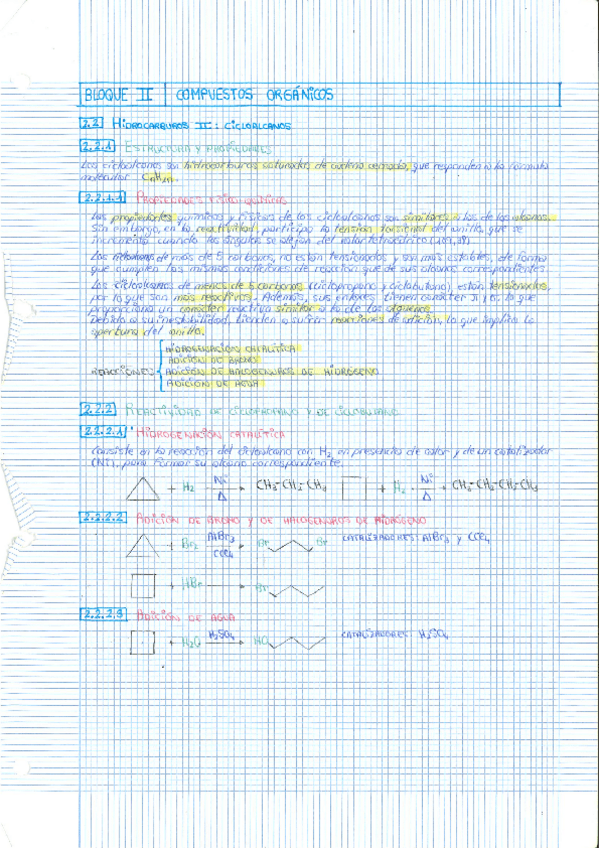 BLOQUE II | COMPUESTOS ORGÁNICOS
2.2 HIDROCARBUROS II: CICLOALCANOS
2.2.1 ESTRUCTURA Y PROPIEDADES
Los cicloalcanos son hidrocarburos saturados de cadena cerrada, que responden a la fórmula
molecular CnH2n.
2.2.1.1 PROPIEDADES FÍSICO-QUÍMICAS
Las propiedades químicas y físicas de los cicloalcanos son similares a las de los alcanos.
Sin embargo, en la reactividad, participa la tensión torsional del anillo, que se
incrementa cuando los ángulos se alejan del valor tetraédrico (109,3º)
Los cicloalcanos de más de 5 carbonos, no están tensionados y son más estables, de forma
que cumplen las mismas condiciones de reacción que de sus alcanos correspondientes.
Los cicloalcanos de menos de 5 carbonos (ciclopropano y ciclobutano) están tensionados,
por lo que son más reactivos. Además, sus enlaces tienen carácter π y σ, lo que
proporciona un carácter reactivo similar a lo de los alquenos.
Debido a su inestabilidad, tienden a sufrir reacciones de adición, lo que implica la
apertura del anillo.
REACCIONES:
HIDROGENACIÓN CATALÍTICA
ADICIÓN DE BROMO
ADICIÓN DE HALOGENUROS DE HIDRÓGENO
ADICIÓN DE AGUA
2.2.2 REACTIVIDAD DE CICLOPROPANO Y DE CICLOBUTANO
2.2.2.1 HIDROGENACIÓN CATALÍTICA
Consiste en la reacción del cicloalcano con H2 en presencia de calor y de un catalizador
(Ni), para formar su alcano correspondiente.
+ H2 Ni Δ CH3-CH2-CH3 + H2 Ni Δ CH3-CH2-CH2-CH3
2.2.2.2 ADICIÓN DE BROMO Y DE HALOGENUROS DE HIDRÓGENO
+ Br2 AlBr3 CCl4 Br Br CATALIZADORES: AlBr3 y CCl4
+ HBr Br
2.2.2.3 ADICIÓN DE AGUA
+ H2O H2SO4 HO CATALIZADORES: H2SO4